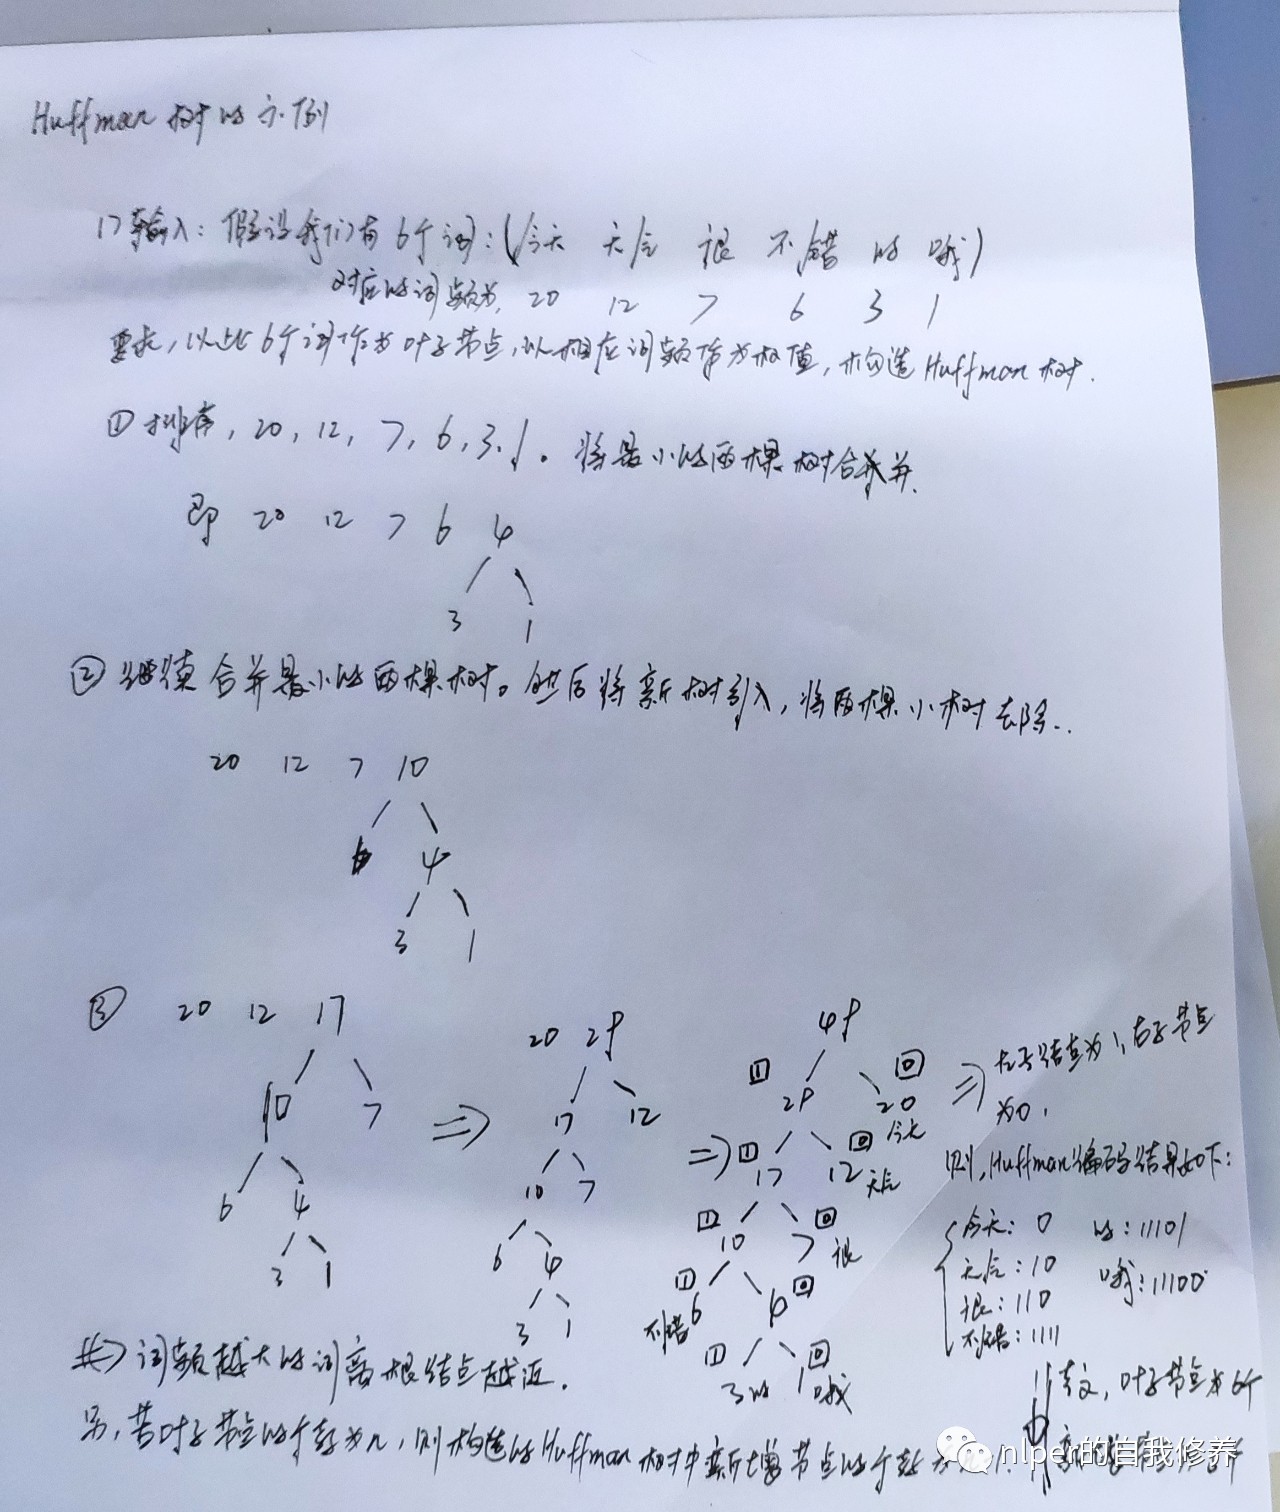 Huffman 树的示例
1> 输入: 假设我们有 6个词: (今天 天气 很 不错 的 哦)
对应的词频为, 20 12 7 6 3 1
要求, 以此6个词作为叶子节点, 以相应词频作为权值, 构造Huffman树.
① 排序, 20, 12, 7, 6, 3, 1. 将最小的两棵树合并.
即 20 12 7 6 4
3 1
② 继续合并最小的两棵树。然后将新树引入, 将两棵小树去除..
20 12 7 10
6 4
3 1
③ 20 12 17
10 7
6 4
3 1
⇒
20 29
17 12
10 7
6 4
3 1
⇒
49
1 29 0 20 今天
1 17 0 12 天气
1 10 0 7 很
1 6 不错 0
1 3 的 0 1 哦
⇒ 左子结点为1, 右子节点
为0,
则, Huffman编码结果如下:
今天: 0 的: 11101
天气: 10 哦: 11100
很: 110
不错: 1111
词频越大的词离根结点越近.
另, 若叶子节点的个数为n, 则构造的Huffman树中新增节点的个数为
叶子节点为6个
nlper的自我修养